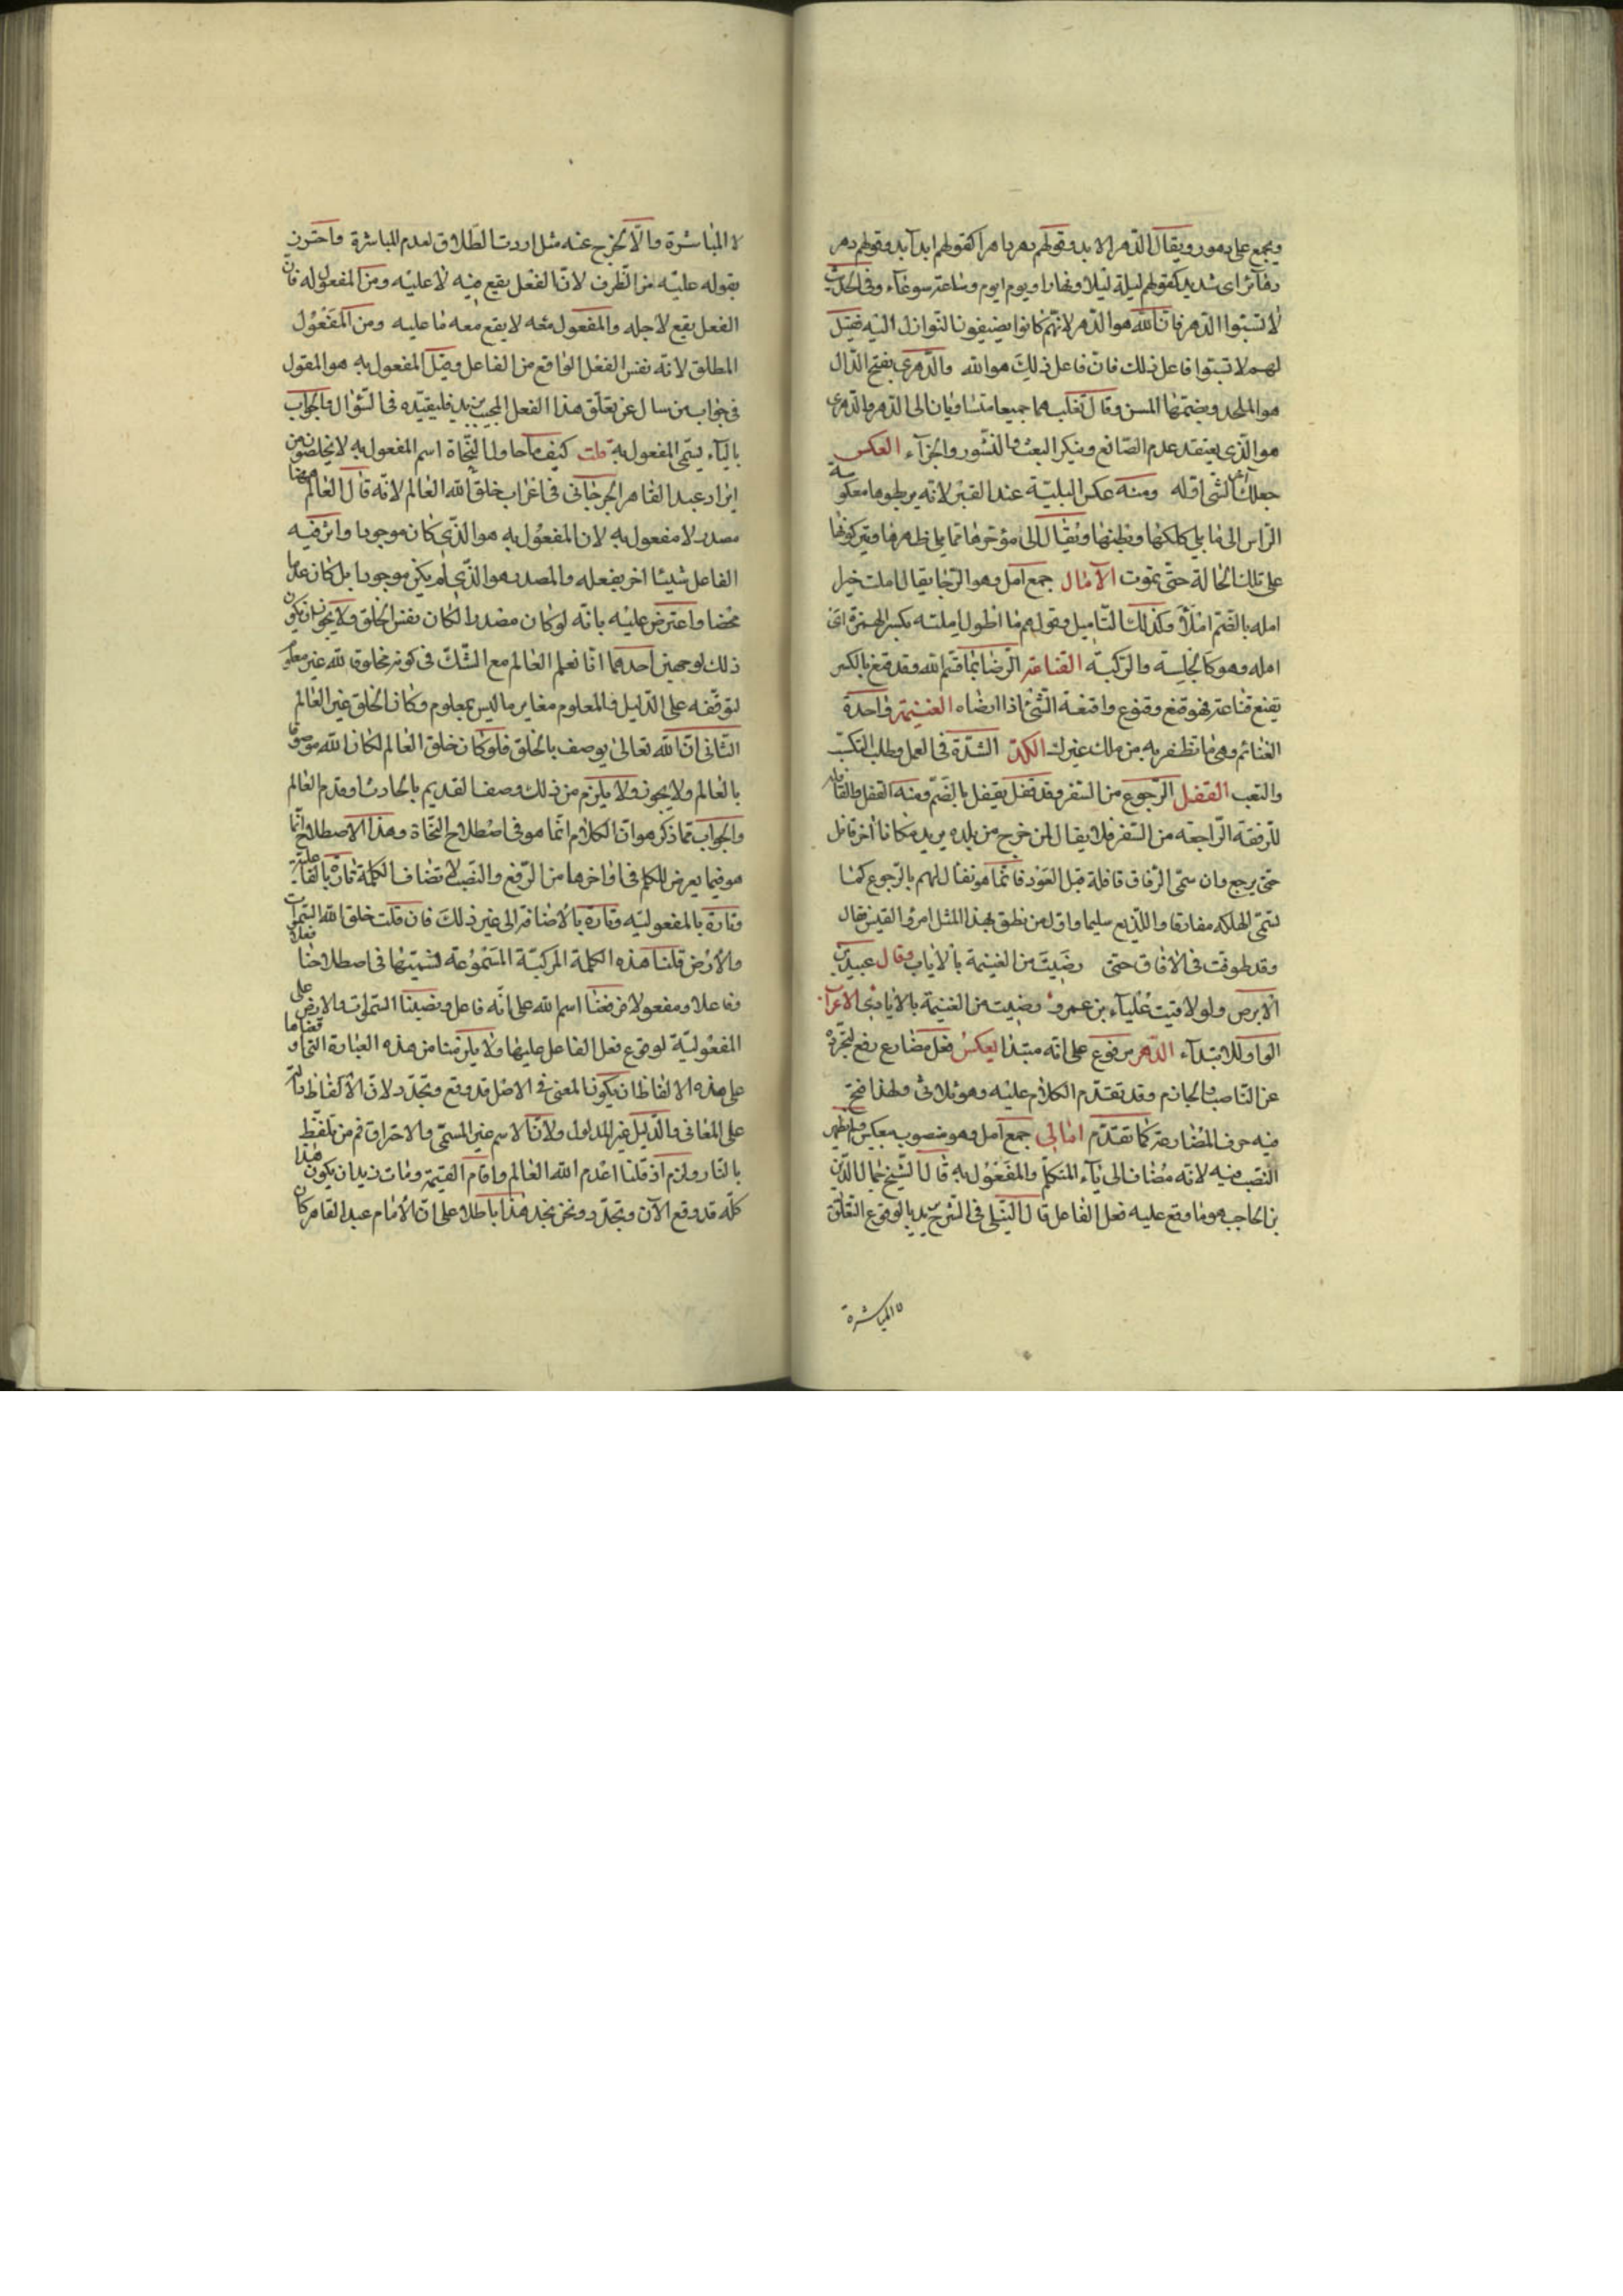 ويجمع على دهور ويقال الدّهر الابد وقولهم دهر داهر كقولهم ابد آبد وقولهم دهر
دهارير اى شديد كقولهم ليلة ليلاء ونهار انهر ويوم ايوم وساعة سوعاء وفى الحديث
لا تسبّوا الدّهر فانّ الله هو الدّهر لانّهم كانوا يضيفون النّوازل اليه فقيل
لهم لا تسبّوا فاعل ذلك فانّ فاعل ذلك هو الله والدّهرى بفتح الدّال
هو الملحد وبضمّها المسن وقال ثعلب هما جميعا منسوبان الى الدّهر والدّهرى
هو الّذى يعتقد عدم الصّانع وينكر البعث والنّشور والجزآء العكس
جعلك آخر الشّى اوّله ومنه عكس البليّة عند القبر لانّه يربطوها معكوسة
الرّاس الى ما يلى كلكلها وبطنها ويقال الى مؤخّرها ممّا يلى ظهرها ويتركونها
على تلك الحالة حتّى تموت الآمال جمع امل وهو الرّجا يقال املت خيرا
امله بالضّم املا وكذلك التّاميل وقولهم ما اطول املته بكسر الهمزة اى
امله وهو كالجلسة والرّكبة القناعة الرّضا بما قسّم الله وقد قنع بالكسر
يقنع قناعة فهو قنع وقنوع واقنعه الشّئ اذا ارضاه الغنيمة واحدة
الغنائم وهى ما تظفر به من ملك غيرك الكدّ الشّدّة فى العمل وطلب التكسّب
والتعب القفل الرّجوع من السّفر وقد قفل يقفل بالضّم ومنه القفل والقافلة
للرّفقة الرّاجعة من السّفر فلا يقال لمن خرج من بلده يريد مكانا اخر قافل
حتّى يرجع وان سمّى الرّفاق قافلة قبل العود فانّما هو تفأل لهم بالرّجوع كما
تسمّى المهلكه مفازة واللّديغ سليما واوّل من نطق بهذا المثل امرؤ القيس فقال
وقد طوفت فى الآفاق حتّى رضيت من الغنيمة بالاياب وقال عبيد بن
الابرص ولو لاقيت علباء بن عمرو رضيت من الغنيمة بالاياب الاعراب
الواو للابتدآء الدّهر مرفوع على انّه مبتدا يعكس فعل مضارع رفع لتجرّده
عن النّاصب والجازم وقد تقدّم الكلام عليه وهو ثلاثى ولهذا فتح
فيه حرف المضارعة كما تقدّم امالى جمع امل وهو منصوب بيعكس ولم يظهر
النّصب فيه لانّه مضاف الى يآء المتكلّم والمفعول به قال الشّيخ جمال الدّين
بن الحاجب هو ما وقع عليه فعل الفاعل قال النّيلى فى الشّرح يريد بالوقوع التعلّق
لا المباشرة
لا المباشرة والّا لخرج عنه مثل اردت الطّلاق لعدم المباشرة واحترز
بقوله عليه من الظّرف لانّ الفعل يقع فيه لا عليه ومن المفعول له فانّ
الفعل يقع لاجله والمفعول معه لا يقع معه لا عليه ومن المفعول
المطلق لانّه نفس الفعل الواقع من الفاعل وقيل المفعول به هو المقول
فى جواب من سال عن تعلّق هذا الفعل المجيب فليقيّده فى السّؤال والجواب
باليآء يسمّى المفعول به قلت كيف ما حاولا النّحاة اسم المفعول به لا يخلصون من
ايراد عبد القاهر الجرجانى فى اعراب خلق الله العالم لانّه قال العالم هنا
مصدر لا مفعول به لان المفعول به هو الّذى كان موجودا واثر فيه
الفاعل شيئا اخر بفعله والمصدر هو الّذى لم يكن موجودا بل كان عدما
محضا واعترض عليه بانّه لو كان مصدرا لكان نفس الخلق ولا يجوز ان يكون
ذلك لوجهين احدهما انّا نعلم العالم مع الشّكّ فى كونه مخلوق الله غير معلوم
لتوقّفه على الدّليل فالمعلوم مغاير ما ليس بمعلوم وكان الخلق غير العالم
الثّانى انّ الله تعالى يوصف بالخلق فلو كان خلق العالم لكان الله موصوفا
بالعالم ولا يجوز ولا يلزم من ذلك وصف القديم بالحادث او قدم العالم
والجواب ممّا ذكر هو انّ الكلام انّما هو فى اصطلاح النّحاة وهذا الاصطلاح انّما
هو فيما يعرض للكلم فى اواخرها من الرّفع والنّصب لا تضاف الكلمة تارة بالفاعليّة
وتارة بالمفعوليّه وتارة بالاضافة الى غير ذلك فان قلت خلق الله السّموات
والارض قلنا هذه الكلمة المركبّة المسموعة لنسمّيها فى اصطلاحنا فعلا
وفاعلا ومفعولا فرفعنا اسم الله على انّه فاعل ونصبنا السّموات والارض على
المفعوليّة لوقوع فعل الفاعل عليها ولا يلزمنا من هذه العبارة الّتى اوقعناها
على هذه الالفاظ ان يكون المعنى فى الاصل قد وقع وتجدّد لانّ الالفاظ دالّة
على المعانى والدّليل غير المدلول ولانّ الاسم غير المسمّى والا احترق فم من تلفّظ
بالنّار ولزم اذ قلنا اعدم الله العالم واقام القيمة ومات زيد ان يكون هذا
كلّه قد وقع الآن وتجدّد ونحن نجد هذا باطلا على انّ الامام عبد القاهر كان